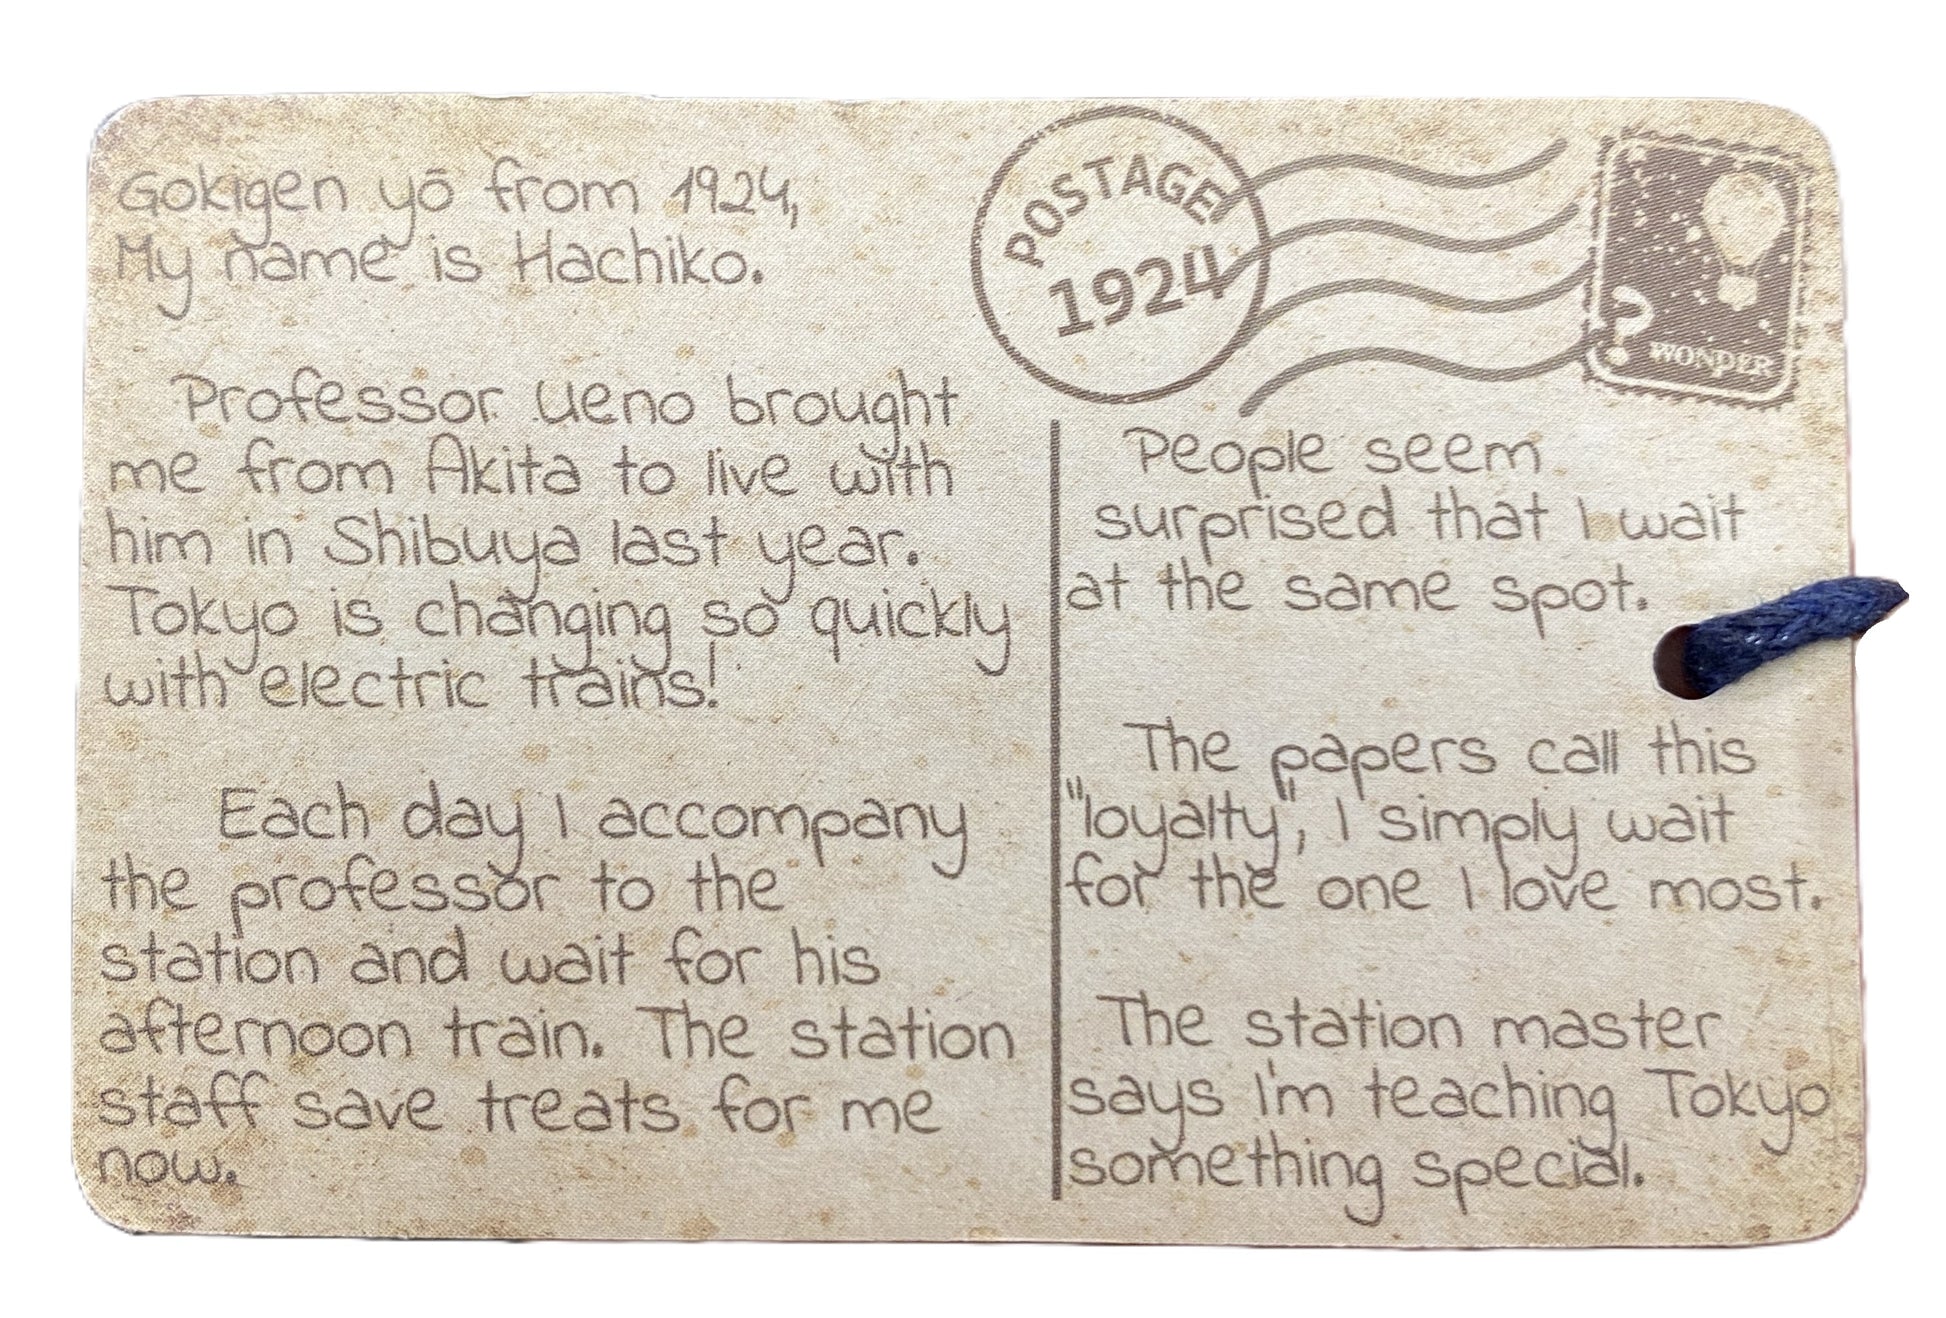 Gokigen yō from 1924,
My name is Hachiko.
Professor Ueno brought
me from Akita to live with
him in Shibuya last year.
Tokyo is changing so quickly
with electric trains!
Each day I accompany
the professor to the
station and wait for his
afternoon train. The station
staff save treats for me
now.
POSTAGE
1924
?
WONDER
People seem
surprised that I wait
at the same spot.
The papers call this
"loyalty", I simply wait
for the one I love most.
The station master
says I'm teaching Tokyo
something special.